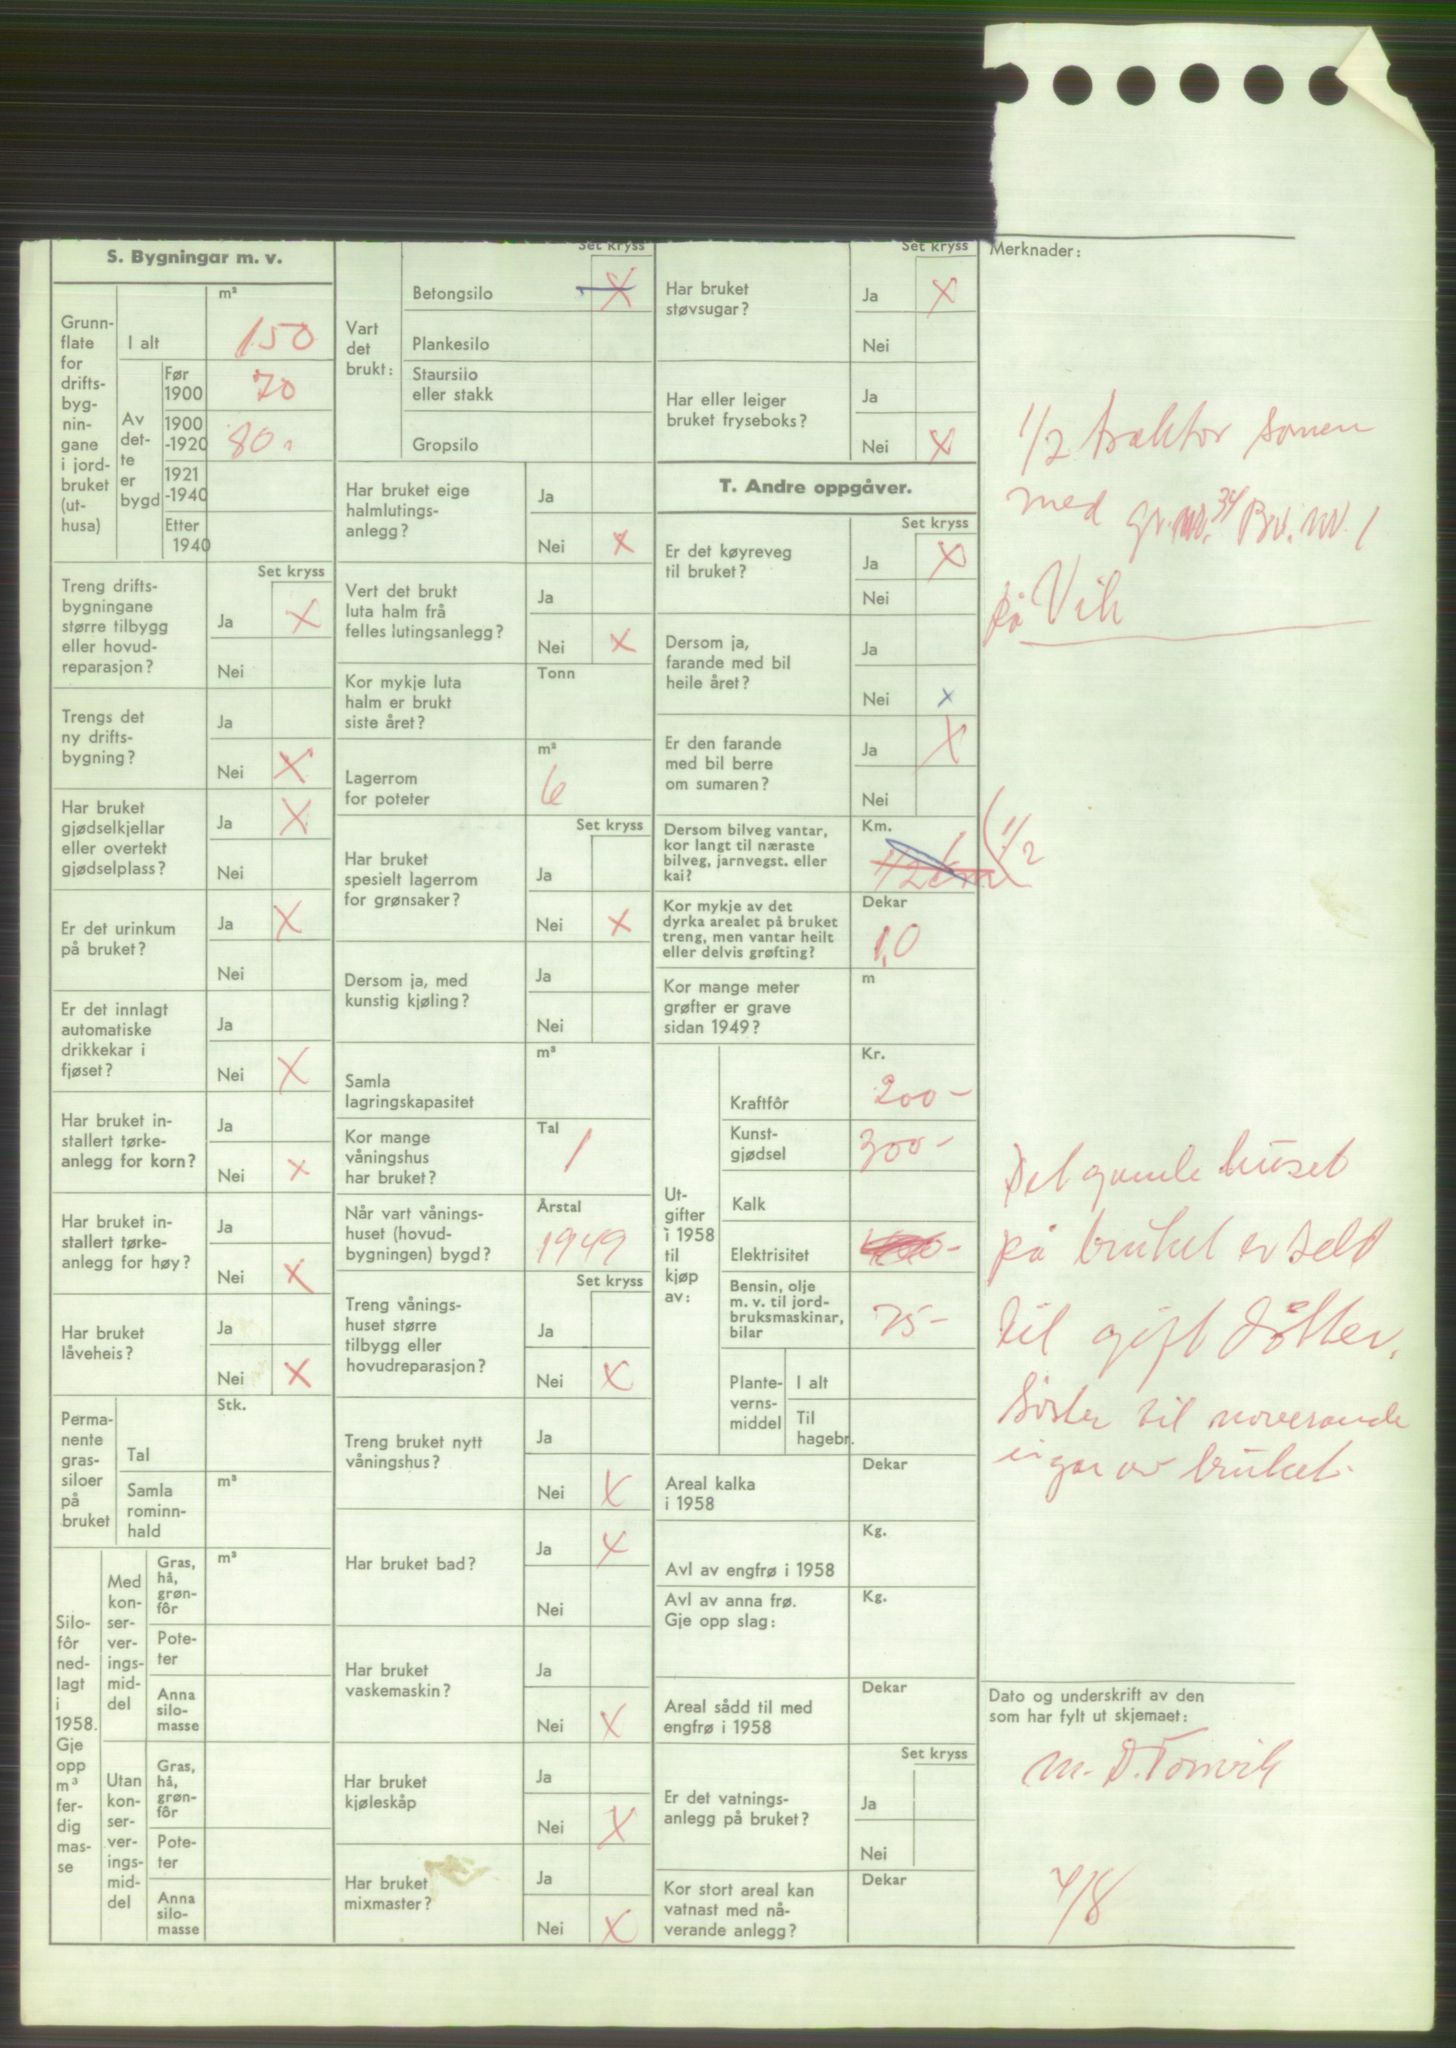 S. Bygningar m. v.
Grunn-
flate
for
drifts-
byg-
nin-
gane
i jord-
bruket
(ut-
husa)
m²
I alt
150
Av
det-
te
er
bygd
Før
1900
70
1900
-1920
80
1921
-1940
Etter
1940
Set kryss
Treng drifts-
bygningane
større tilbygg
eller hovud-
reparasjon?
Ja X
Nei
Trengs det
ny drifts-
bygning?
Ja
Nei X
Har bruket
gjødselkjellar
eller overtekt
gjødselplass?
Ja X
Nei
Er det urinkum
på bruket?
Ja X
Nei
Er det innlagt
automatiske
drikkekar i
fjøset?
Ja
Nei X
Har bruket in-
stallert tørke-
anlegg for korn?
Ja
Nei X
Har bruket in-
stallert tørke-
anlegg for høy?
Ja
Nei X
Har bruket
låveheis?
Ja
Nei X
Perma-
nente
gras-
siloer
på
bruket
Stk.
Tal
Samla
rominn-
hald
m³
Silo-
fôr
ned-
lagt
i
1958.
Gje
opp
m³
fer-
dig
mas-
se
Med
kon-
ser-
ver-
ings-
mid-
del
Gras,
hå,
grøn-
fôr
m³
Pote-
ter
Anna
silo-
masse
Utan
kon-
ser-
ver-
ings-
mid-
del
Gras,
hå,
grøn-
fôr
Pote-
ter
Anna
silo-
masse
Set kryss
Vart
det
brukt:
Betongsilo X
Plankesilo
Staursilo
eller stakk
Gropsilo
Har bruket eige
halmlutings-
anlegg?
Ja
Nei X
Vert det brukt
luta halm frå
felles lutingsanlegg?
Ja
Nei X
Kor mykje luta
halm er brukt
siste året?
Tonn
Lagerrom
for poteter
m²
6
Set kryss
Har bruket
spesielt lagerrom
for grønsaker?
Ja
Nei X
Dersom ja, med
kunstig kjøling?
Ja
Nei
Samla
lagringskapasitet
m³
Kor mange
våningshus
har bruket?
Tal
1
Når vart vånings-
huset (hovud-
bygningen) bygd?
Årstal
1949
Set kryss
Treng vånings-
huset større
tilbygg eller
hovudreparasjon?
Ja
Nei X
Treng bruket nytt
våningshus?
Ja
Nei X
Har bruket bad?
Ja X
Nei
Har bruket
vaskemaskin?
Ja
Nei X
Har bruket
kjøleskåp
Ja
Nei X
Har bruket
mixmaster?
Ja
Nei X
Set kryss
Har bruket
støvsugar?
Ja X
Nei
Har eller leiger
bruket fryseboks?
Ja
Nei X
T. Andre oppgåver.
Set kryss
Er det køyreveg
til bruket?
Ja X
Nei
Dersom ja,
farande med bil
heile året?
Ja
Nei x
Er den farande
med bil berre
om sumaren?
Ja X
Nei
Dersom bilveg vantar,
kor langt til næraste
bilveg, jarnvegst. eller
kai?
Km.
1/2
Kor mykje av det
dyrka arealet på bruket
treng, men vantar heilt
eller delvis grøfting?
Dekar
1,0
Kor mange meter
grøfter er grave
sidan 1949?
m
Ut-
gifter
i 1958
til
kjøp
av:
Kr.
Kraftfôr
200-
Kunst-
gjødsel
300-
Kalk
Elektrisitet
Bensin, olje
m. v. til jord-
bruksmaskinar,
bilar
75-
Plante-
verns-
middel
I alt
Til
hagebr.
Areal kalka
i 1958
Dekar
Avl av engfrø i 1958
Kg.
Avl av anna frø.
Gje opp slag:
Kg.
Areal sådd til med
engfrø i 1958
Dekar
Set kryss
Er det vatnings-
anlegg på bruket?
Ja
Nei
Kor stort areal kan
vatnast med nå-
verande anlegg?
Dekar
Merknader:
1/2 traktor samen
med gr.nr. 34 Br. nr. 1
på Vik
Det gamle huset
på bruket er seld
til gift dotter,
Syster til noverande
eigar av bruket.
Dato og underskrift av den
som har fylt ut skjemaet:
M. D. Tomvik
4/8